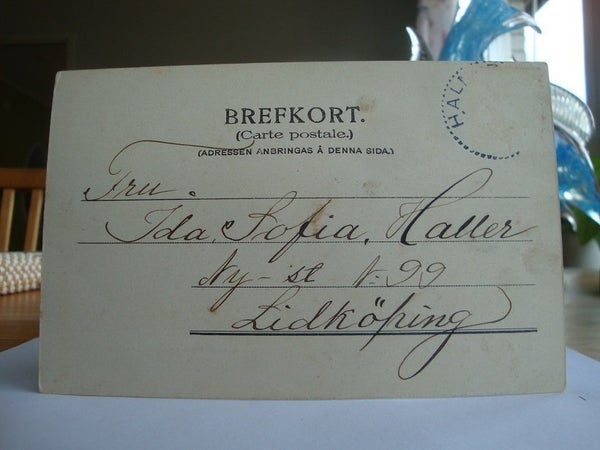 BREFKORT.
(Carte postale.)
(ADRESSEN ANBRINGAS Å DENNA SIDA.)
HALL
Fru.
Ida, Sofia, Haller
Ny-st N. 99
Lidköping